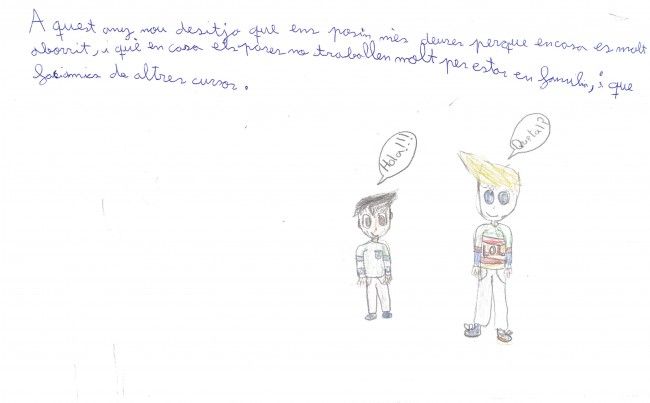 A quest any nou desitjo que ens posin més deures perque encasa es molt
aborrit, i què en casa els pares no traballen molt per estar en familia, i que
fem amics de altres cursos.
Hola!!!
Que tal?
LOL